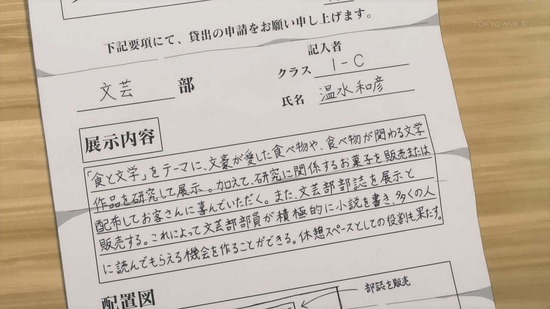 TOKYO MX 1
下記要項にて、貸出の申請をお願い申し上げます。
記入者
文芸 部
クラス 1-C
氏名 温水和彦
展示内容
「食と文学」をテーマに、文豪が愛した食べ物や、食べ物が関わる文学
作品を研究して展示。加えて、研究に関係するお菓子を販売または
配布してお客さんに喜んでいただく。また、文芸部部誌を展示と
販売する。これによって文芸部部員が積極的に小説を書き、多くの人
に読んでもらえる機会を作ることができる。休憩スペースとしての役割も果たす。
配置図
部誌を販売